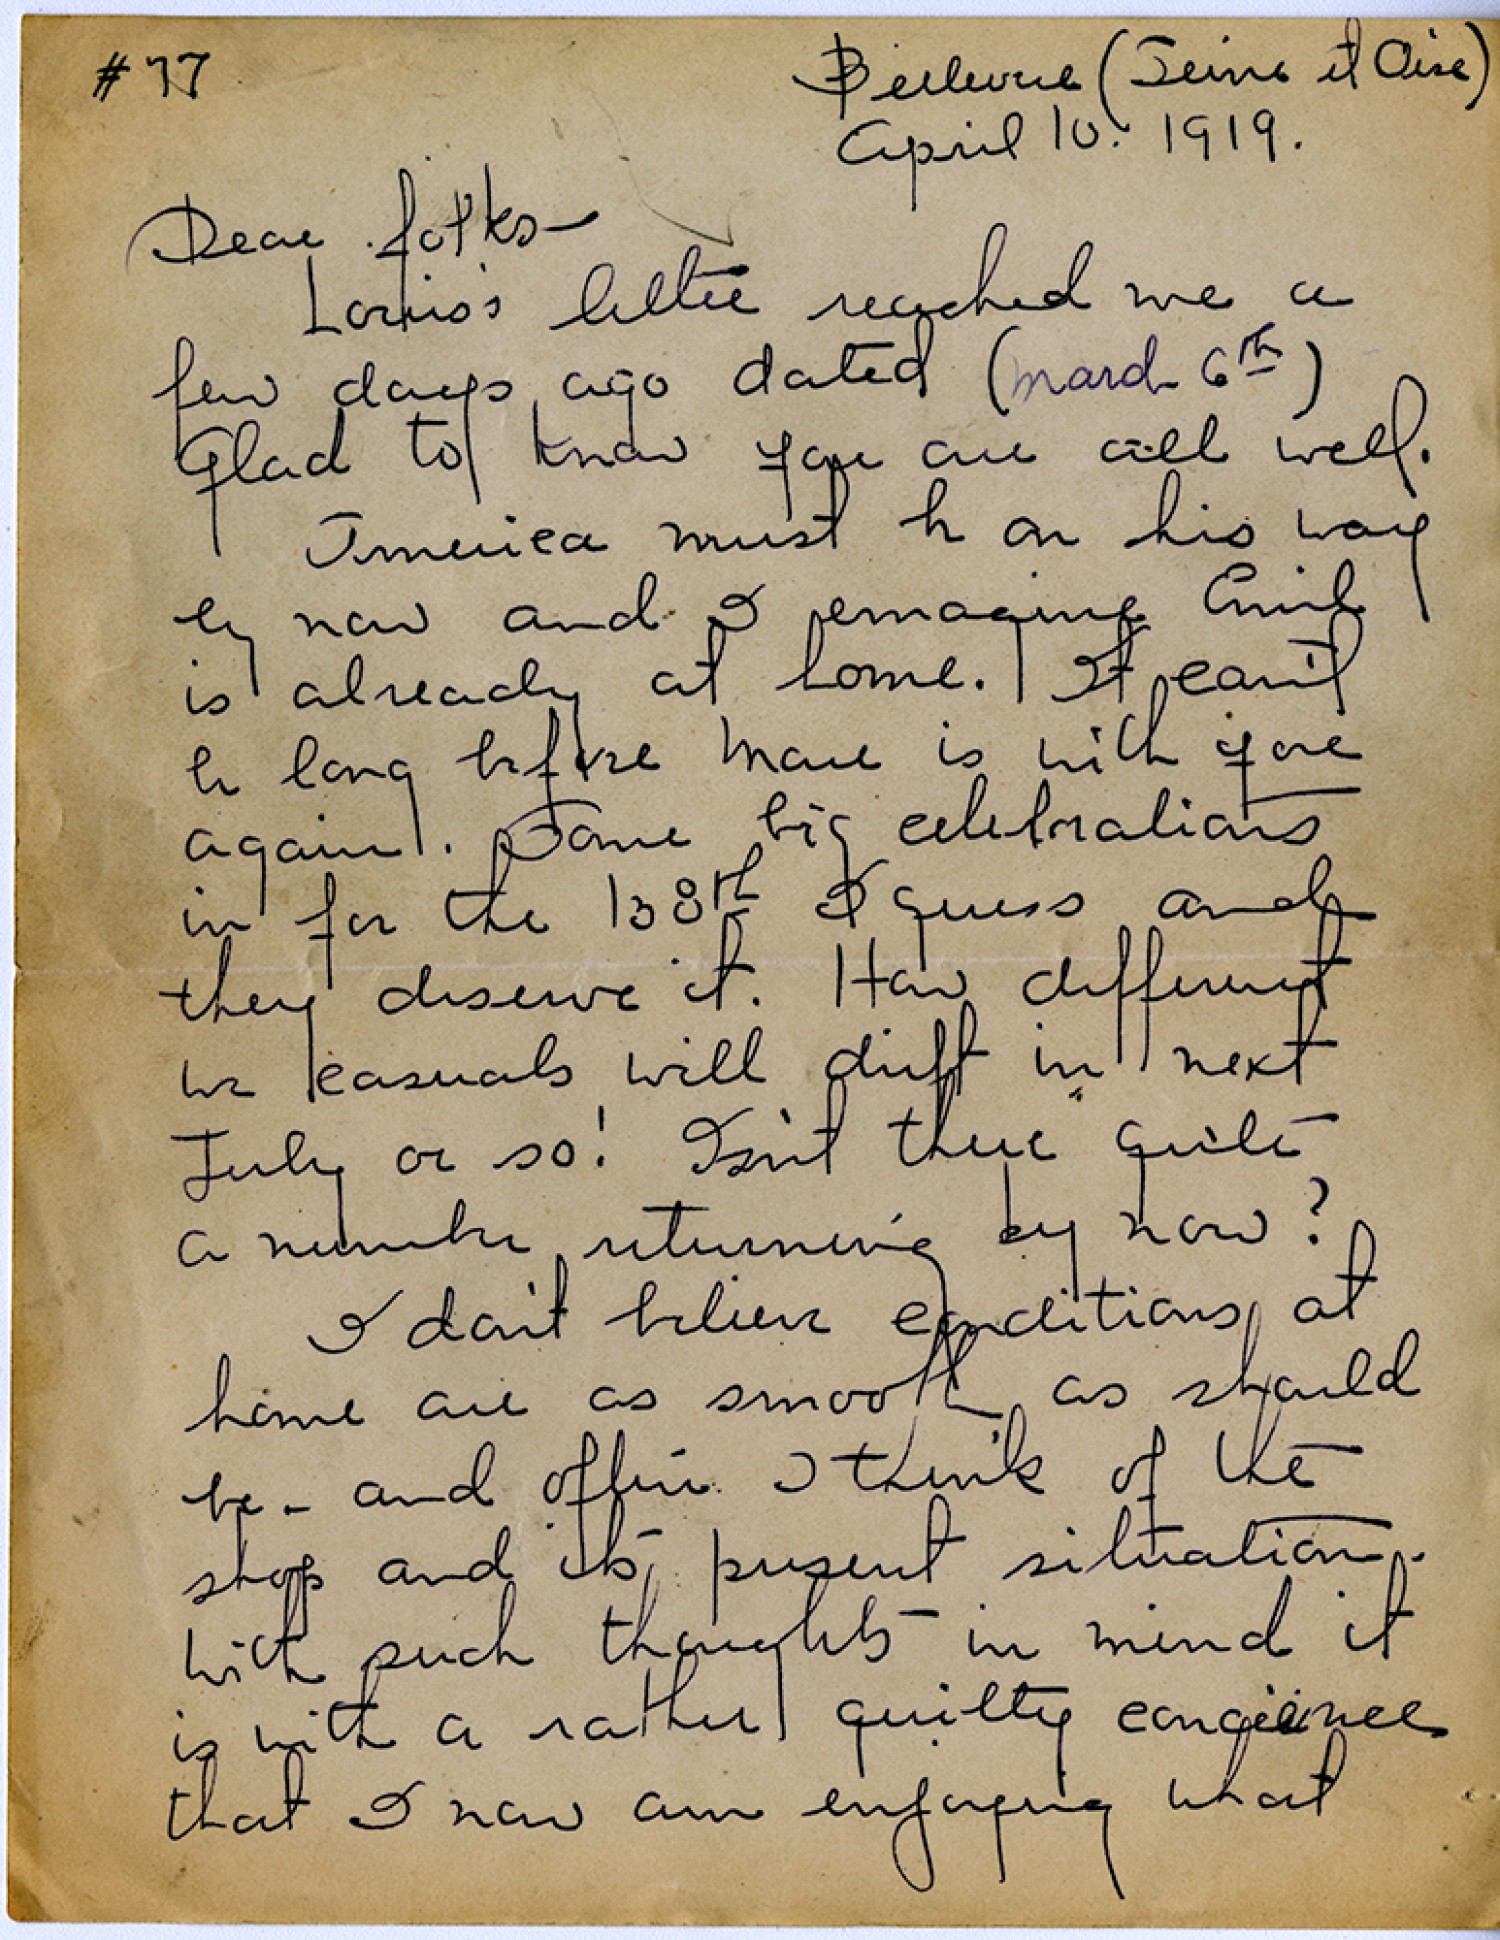 #77
Bellevue (Seine et Oise)
April 10. 1919.
Dear folks—
Louis's letter reached me a
few days ago dated (March 6th)
Glad to know you are all well.
America must be on his way
by now and I emagine Emil
is already at home. It can't
be long before Marc is with you
again. Some big celebrations
in for the 138th I guess and
they deserve it. How different
we casuals will drift in next
July or so! Isn't there quite
a number returning by now?
I don't believe conditions at
home are as smooth as should
be - and often I think of the
shop and its present situation.
With such thoughts in mind it
is with a rather guilty
that I now am enjoying what